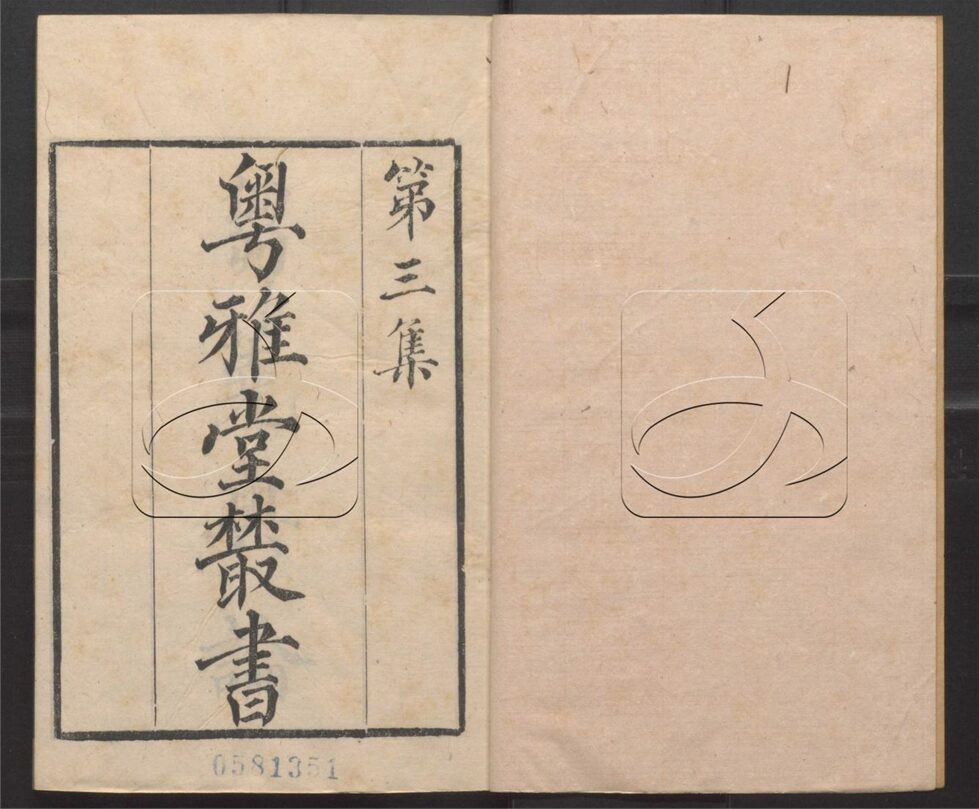 第三集
粤雅堂叢書
0581351